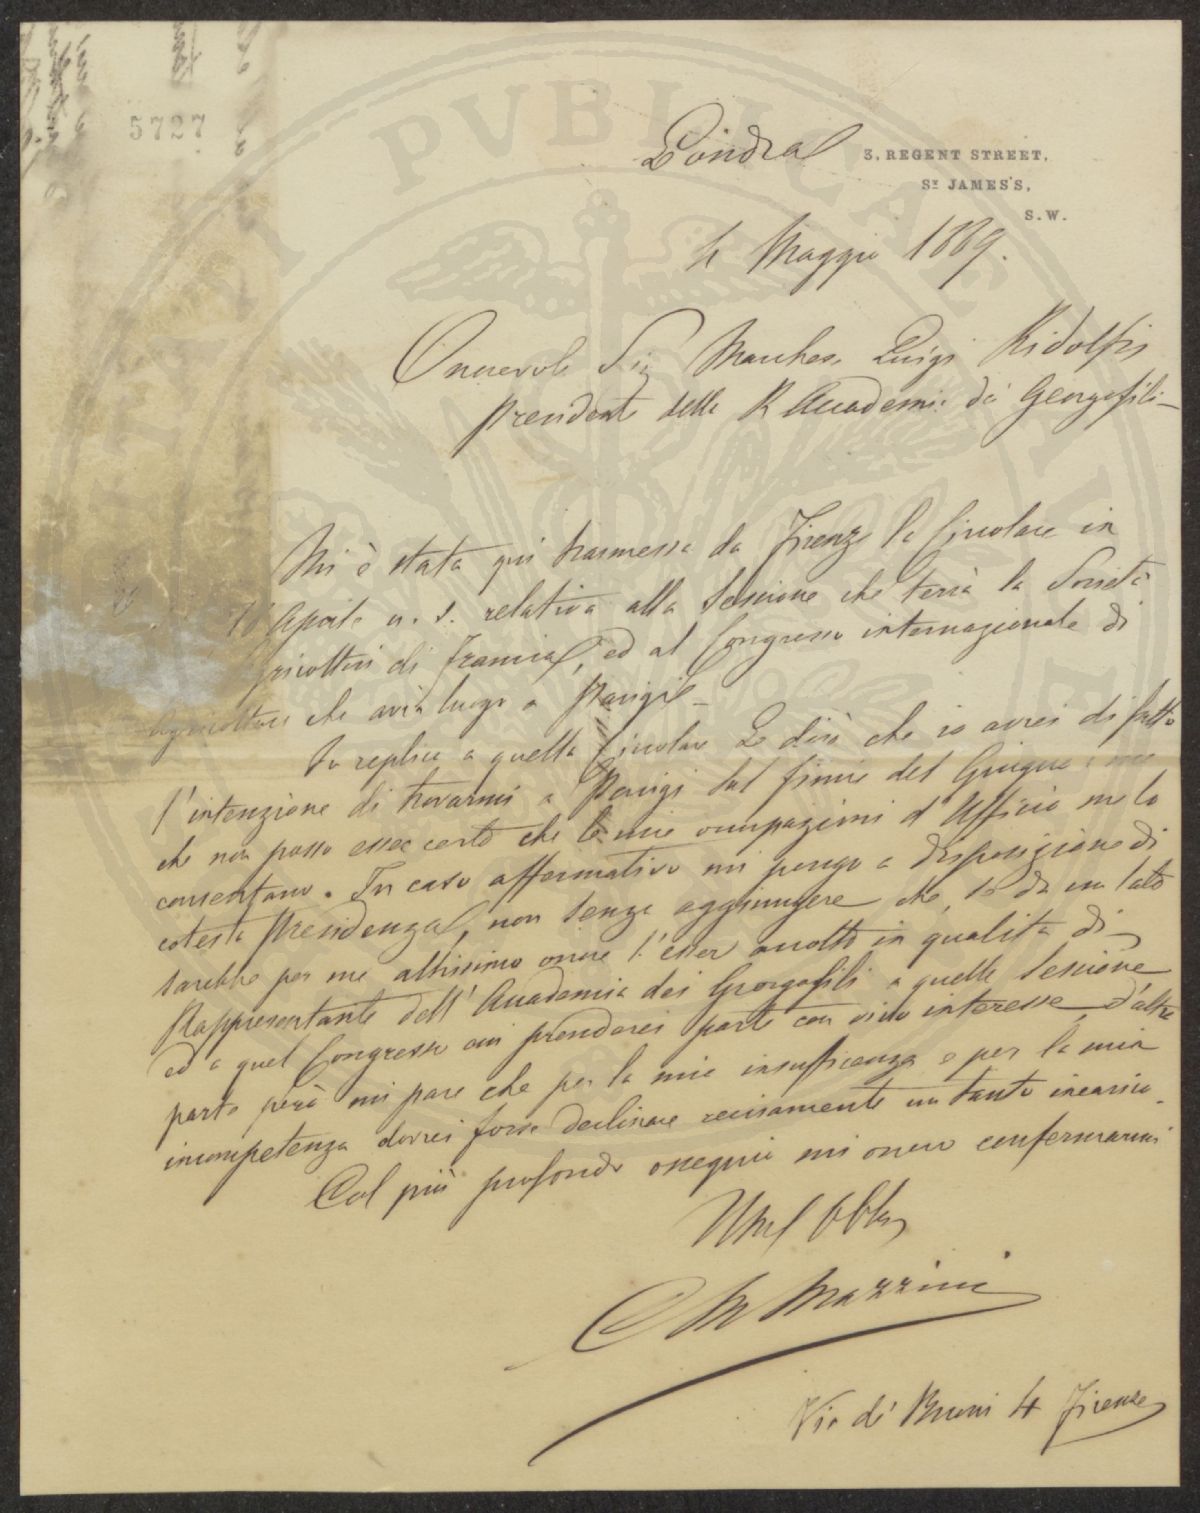 5727
Londra 3, REGENT STREET,
ST JAMES'S,
S.W.
4 Maggio 1889.
Onorevole Sig Marchese Luigi Ridolfi
Presidente della R Accademia dei Georgofili
Mi è stata qui trasmessa da Firenze la Circolare in
Aprile u. s. relativa alla Sessione che terrà la Società
Agricoltori di Francia, ed al Congresso internazionale di
Agricoltura che avrà luogo a Parigi
In replica a quella Circolare Le dirò che io avrei di fatto
l'intenzione di trovarmi a Parigi sul finire del Giugno
che non posso esser certo che le mie occupazioni d'Ufficio me lo
consentano. In caso affermativo mi pongo a disposizione di
cotesta Presidenza, non senza aggiungere che, se da un lato
sarebbe per me altissimo onore l'esser accolto in qualità di
Rappresentante dell'Accademia dei Georgofili a quella Sessione
ed a quel Congresso cui prenderei parte con vivo interesse, d'altra
parte però mi pare che per la mia insufficenza e per la mia
incompetenza dovrei forse declinare recisamente un tanto incarico.
Col più profondo ossequio mi onoro confermarmi
Obblmo
C M Mazzini
Via de' Bruni 4 Firenze
PVBLICAE